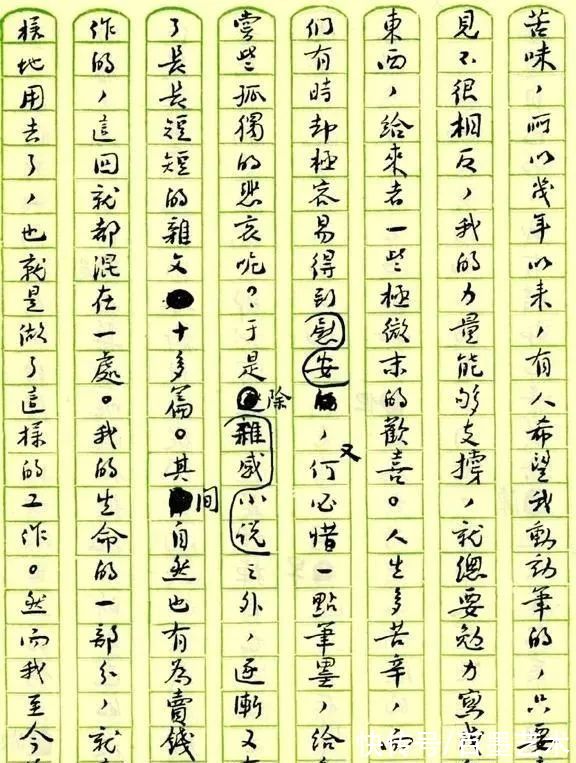 苦味，所以幾年以来，有人希望我動動筆的，只要
見不很相反，我的力量能够支撑，就總要勉力寫
東西，給來者一些極微末的歡喜。人生多苦辛，
们有時却極容易得到慰安，又何必惜一點筆墨，給
嘗些孤獨的悲哀呢？于是除雜感小说之外，逐漸又有
了長長短短的雜文十多篇。其间自然也有為賣錢
作的，這回就都混在一處。我的生命的一部分，就
樣地用去了，也就是做了這樣的工作。然而我至今
快传号/